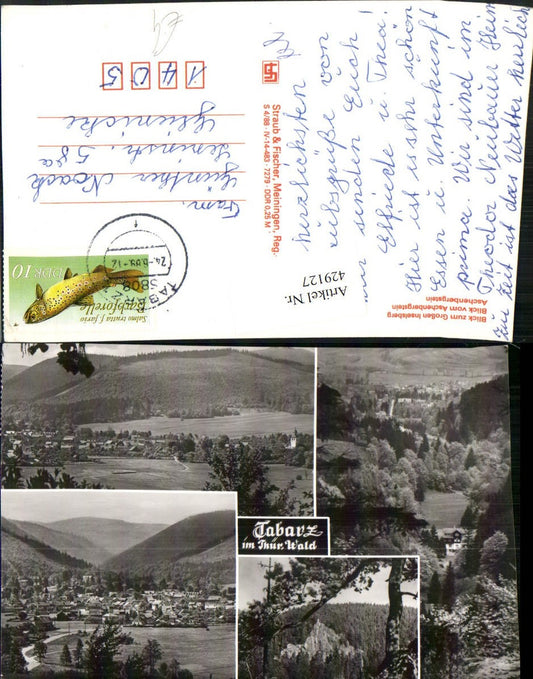 Die herzlichsten
Urlaubsgrüße von
uns senden Euch
Elfriede u. Thea!
Hier ist es sehr schön
Essen u. Unterkunft
prima. Wir sind im
Theodor Neubauer Heim
Zur Zeit ist das Wetter herrlich
Blick zum Großen Inselsberg
Blick vom Aschenbergstein
Aschenbergstein
Artikel Nr.
429127
Straub & Fischer, Meiningen, Reg.
S 4/88 · IV-14-483 · 7279 · DDR 0,25 M
DDR 10
Salmo trutta f. fario
Bachforelle
TABARZ
5808
Fam.
Günther Noack
Leninstr. 58a
Glienicke
1405
Tabarz
im Thür. Wald